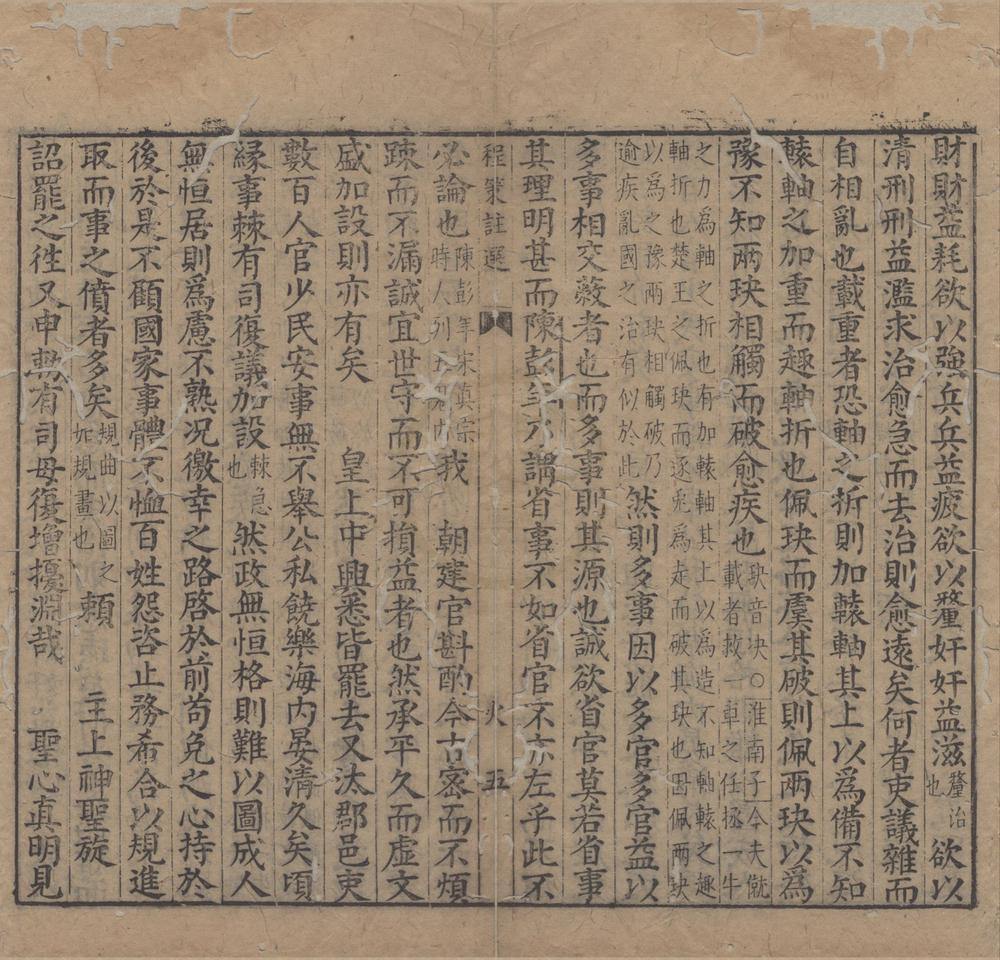 財財益耗欲以強兵兵益疲欲以釐奸奸益滋釐治也欲以
清刑刑益濫求治愈急而去治則愈遠矣何者吏議雜而
自相亂也載重者恐軸之折則加轅軸其上以爲備不知
轅軸之加重而趣軸折也佩玦而虞其破則佩兩玦以爲
豫不知兩玦相觸而破愈疾也玦音決○淮南子今夫僦載者救一車之任極一牛
之力爲軸之折也有加轅軸其上以爲造不知軸轅之趣
軸折也楚王之佩玦而逐兎爲走而破其玦也因佩兩玦
以爲之豫兩玦相觸破乃
逾疾亂國之治有似於此然則多事因以多官多官益以
多事相交敝者也而多事則其源也誠欲省官莫若省事
其理明甚而陳彭年乃謂省事不如省官不亦左乎此不
程策註選 火 五
必論也陳彭年宋真宗時人列五鬼內我 朝建官斟酌今古密而不煩
踈而不漏誠宜世守而不可損益者也然承平久而虛文
盛加設則亦有矣 皇上中興悉皆罷去又汰郡邑吏
數百人官少民安事無不舉公私饒樂海內晏清久矣頃
緣事棘有司復議加設棘急也然政無恒格則難以圖成人
無恒居則爲慮不熟况徼幸之路啓於前苟免之心持於
後於是不顧國家事體不恤百姓怨咨止務希合以規進
取而事之僨者多矣規曲以圖之如規畫也頼 主上神聖旋
詔罷之徃又申勑有司毋復增擾淵哉 聖心真明見